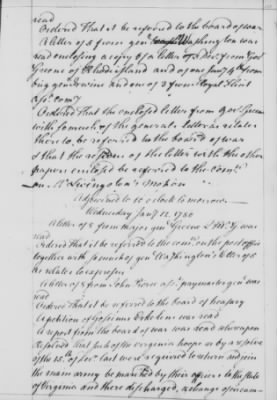 read
Ordered That it be referred to the board of war
A letter of 8 from genl Washington was
read enclosing a copy of a letter of Decr from Govr
Greene of Rhode island and of one Jany 4th from
brig genl wine and one of 3 from Royal Flint
assi. comy
Ordered That the enclosed letter from Govr Greene
with so much of the generals letter as relates
thereto be referred to the board of war
& that the residue of the letter with the other
papers enclosed be referred to the comee
on Mr Livingston's motion
Adjourned to 10 o clock to morrow
Wednesday Jany 12. 1780
A letter of 8 from major genl Greene was
read
Ordered that it be referred to the come on the post office
together with so much of genl Washington's letter of 8
as relates to expresses
A letter of 8 from John Pierce assi. paymaster genl was
read
Ordered That it be referred to the board of treasury
A petition of was read
A report from the board of war was read whereupon
Resolved That such of the virginia troops as by a resolve
of the of last were required to return and join
the main army be marched by their officers to the state
of Virginia and there discharged, a change of circum-